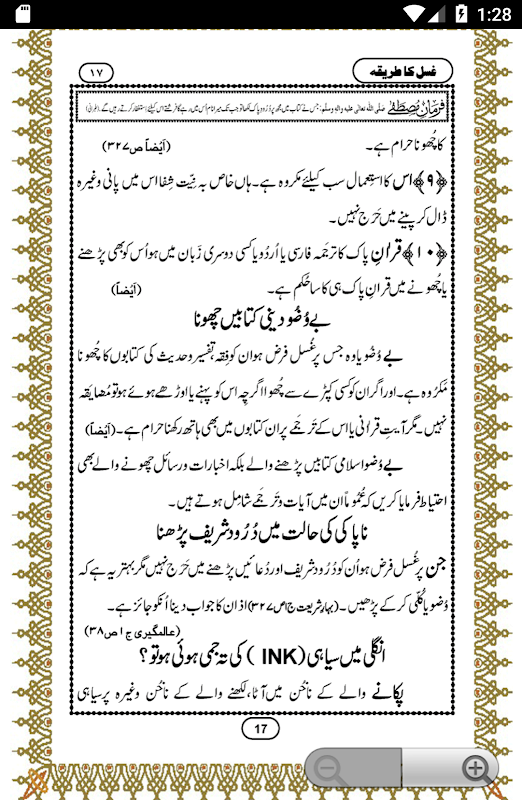 1:28
غسل کا طریقہ
۱۷
فرمانِ مصطفٰے صلی اللہ تعالیٰ علیہ والہ وسلم: جس نے کتاب میں مجھ پر دُرود پاک لکھا تو جب تک میرا نام اُس میں رہے گا فرشتے اس کیلئے استغفار کرتے رہیں گے۔ (طبرانی)
کا چھونا حرام ہے۔ (اَیْضاً ص ۳۲۷)
﴿۹﴾ اس کا استِعمال سب کیلئے مکروہ ہے۔ ہاں خاص بہ نیّتِ شِفا اس میں پانی وغیرہ
ڈال کر پینے میں حَرَج نہیں۔
﴿۱۰﴾ قرانِ پاک کا ترجَمہ فارسی یا اُردُو یا کسی دوسری زَبان میں ہو اُس کو بھی پڑھنے
یا چُھونے میں قرانِ پاک ہی کا سا حُکم ہے۔ (اَیْضاً)
بے وُضُو دینی کتابیں چھونا
بے وُضُو یا وہ جس پر غُسل فرض ہو ان کو فِقہ، تفسیر و حدیث کی کتابوں کا چُھونا
مَکرُوہ ہے۔ اور اگر ان کو کسی کپڑے سے چُھوا اگرچِہ اس کو پہنے یا اوڑھے ہوئے ہو تو مُضایَقہ
نہیں۔ مگر آیتِ قرانی یا اس کے تَرجَمے پر ان کتابوں میں بھی ہاتھ رکھنا حرام ہے۔ (اَیْضاً)
بے وُضو اسلامی کتابیں پڑھنے والے بلکہ اخبارات و رسائل چھونے والے بھی
احتیاط فرمایا کریں کہ عُمُوماً ان میں آیات و تَرجَمے شامِل ہوتے ہیں۔
ناپاکی کی حالت میں دُرُود شریف پڑھنا
جن پر غُسل فرض ہو اُن کو دُرُود شریف اور دُعائیں پڑھنے میں حَرَج نہیں مگر بہتر یہ ہے کہ
وُضو یا کُلّی کر کے پڑھیں۔ (بہارِ شریعت ج۱ ص ۳۲۷) اذان کا جواب دینا اُنکو جائز ہے۔
(عالمگیری ج ۱ ص ۳۸)
انگلی میں سیاہی (INK) کی تہ جمی ہوئی ہو تو؟
پکانے والے کے ناخُن میں آٹا، لکھنے والے کے ناخُن وغیرہ پر سیاہی
17